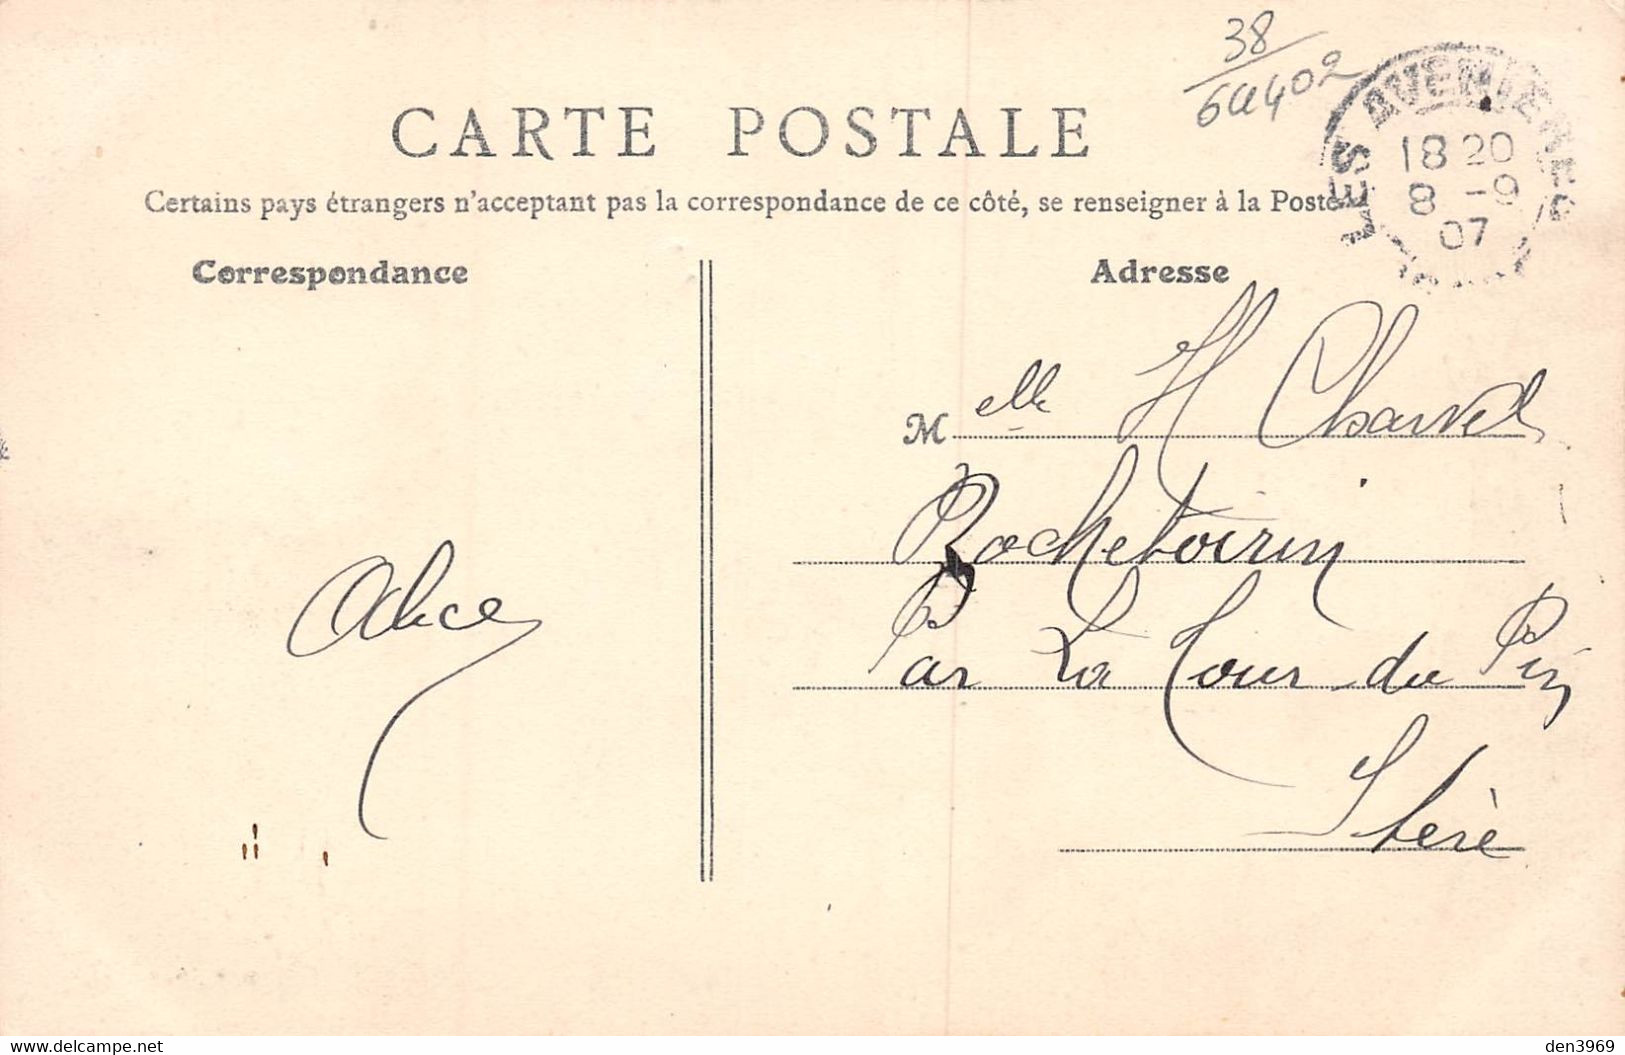 38
6a402
LES AVENIERES
18 20
8 -9
07
CARTE POSTALE
Certains pays étrangers n'acceptant pas la correspondance de ce côté, se renseigner à la Poste.
Correspondance
Adresse
Melle H Charvet
Rochetoirin
Par La Tour du Pin
Isère
Alice
www.delcampe.net
den3969